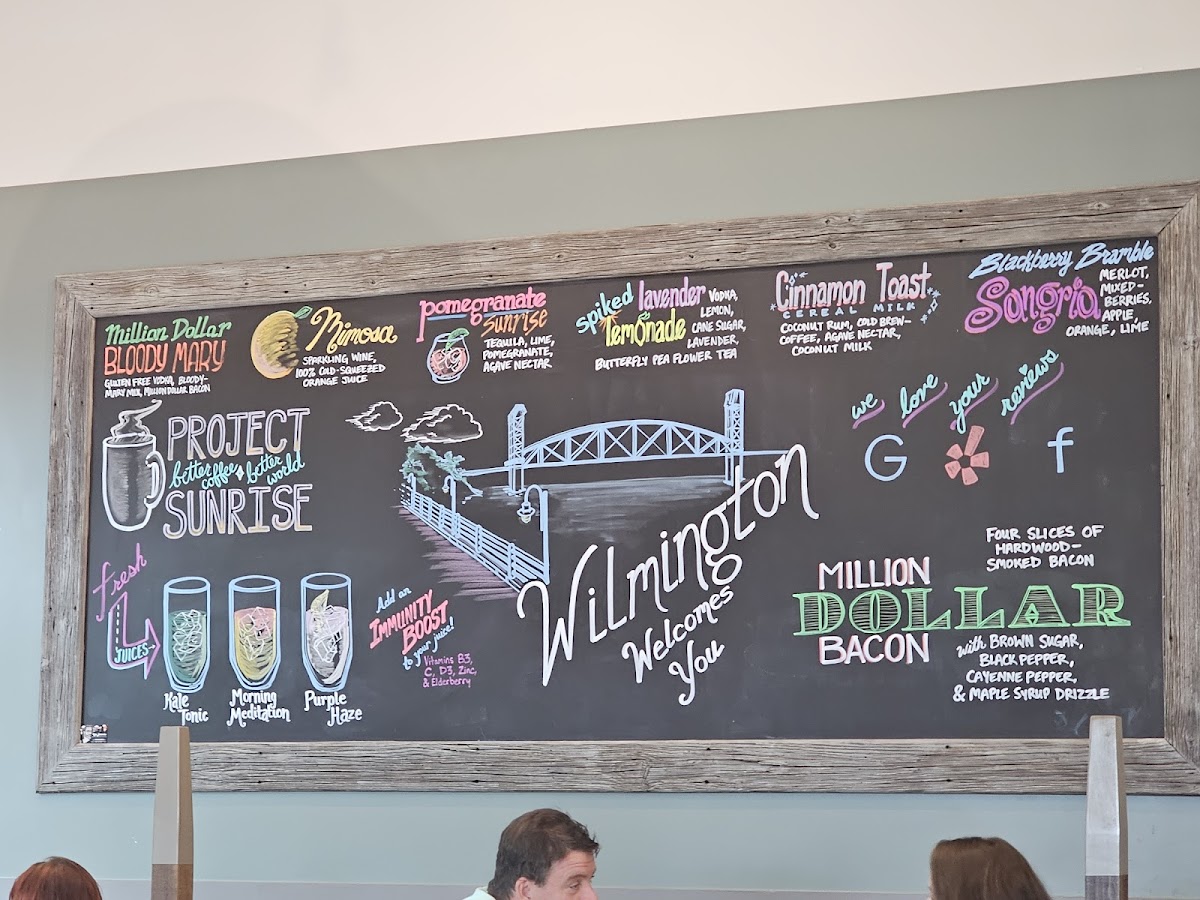 Million Dollar
BLOODY MARY
GLUTEN FREE VODKA, BLOODY-
MARY MIX, MILLION DOLLAR BACON
Mimosa
SPARKLING WINE,
100% COLD-SQUEEZED
ORANGE JUICE
pomegranate
Sunrise
TEQUILA, LIME,
POMEGRANATE,
AGAVE NECTAR
spiked lavender
lemonade
VODKA,
LEMON,
CANE SUGAR,
LAVENDER,
BUTTERFLY PEA FLOWER TEA
Cinnamon Toast
CEREAL MILK
COCONUT RUM, COLD BREW-
COFFEE, AGAVE NECTAR,
COCONUT MILK
Blackberry Bramble
Sangria
MERLOT,
MIXED-
BERRIES,
APPLE,
ORANGE, LIME
PROJECT
better coffee better world
SUNRISE
we love your reviews
G f
fresh
JUICES
Kale
Tonic
Morning
Meditation
Purple
Haze
Add an
IMMUNITY
BOOST
to your juice!
Vitamins B3,
C, D3, Zinc,
& Elderberry
Wilmington
Welcomes
You
FOUR SLICES OF
HARDWOOD-
SMOKED BACON
MILLION
DOLLAR
BACON
with BROWN SUGAR,
BLACK PEPPER,
CAYENNE PEPPER,
& MAPLE SYRUP DRIZZLE